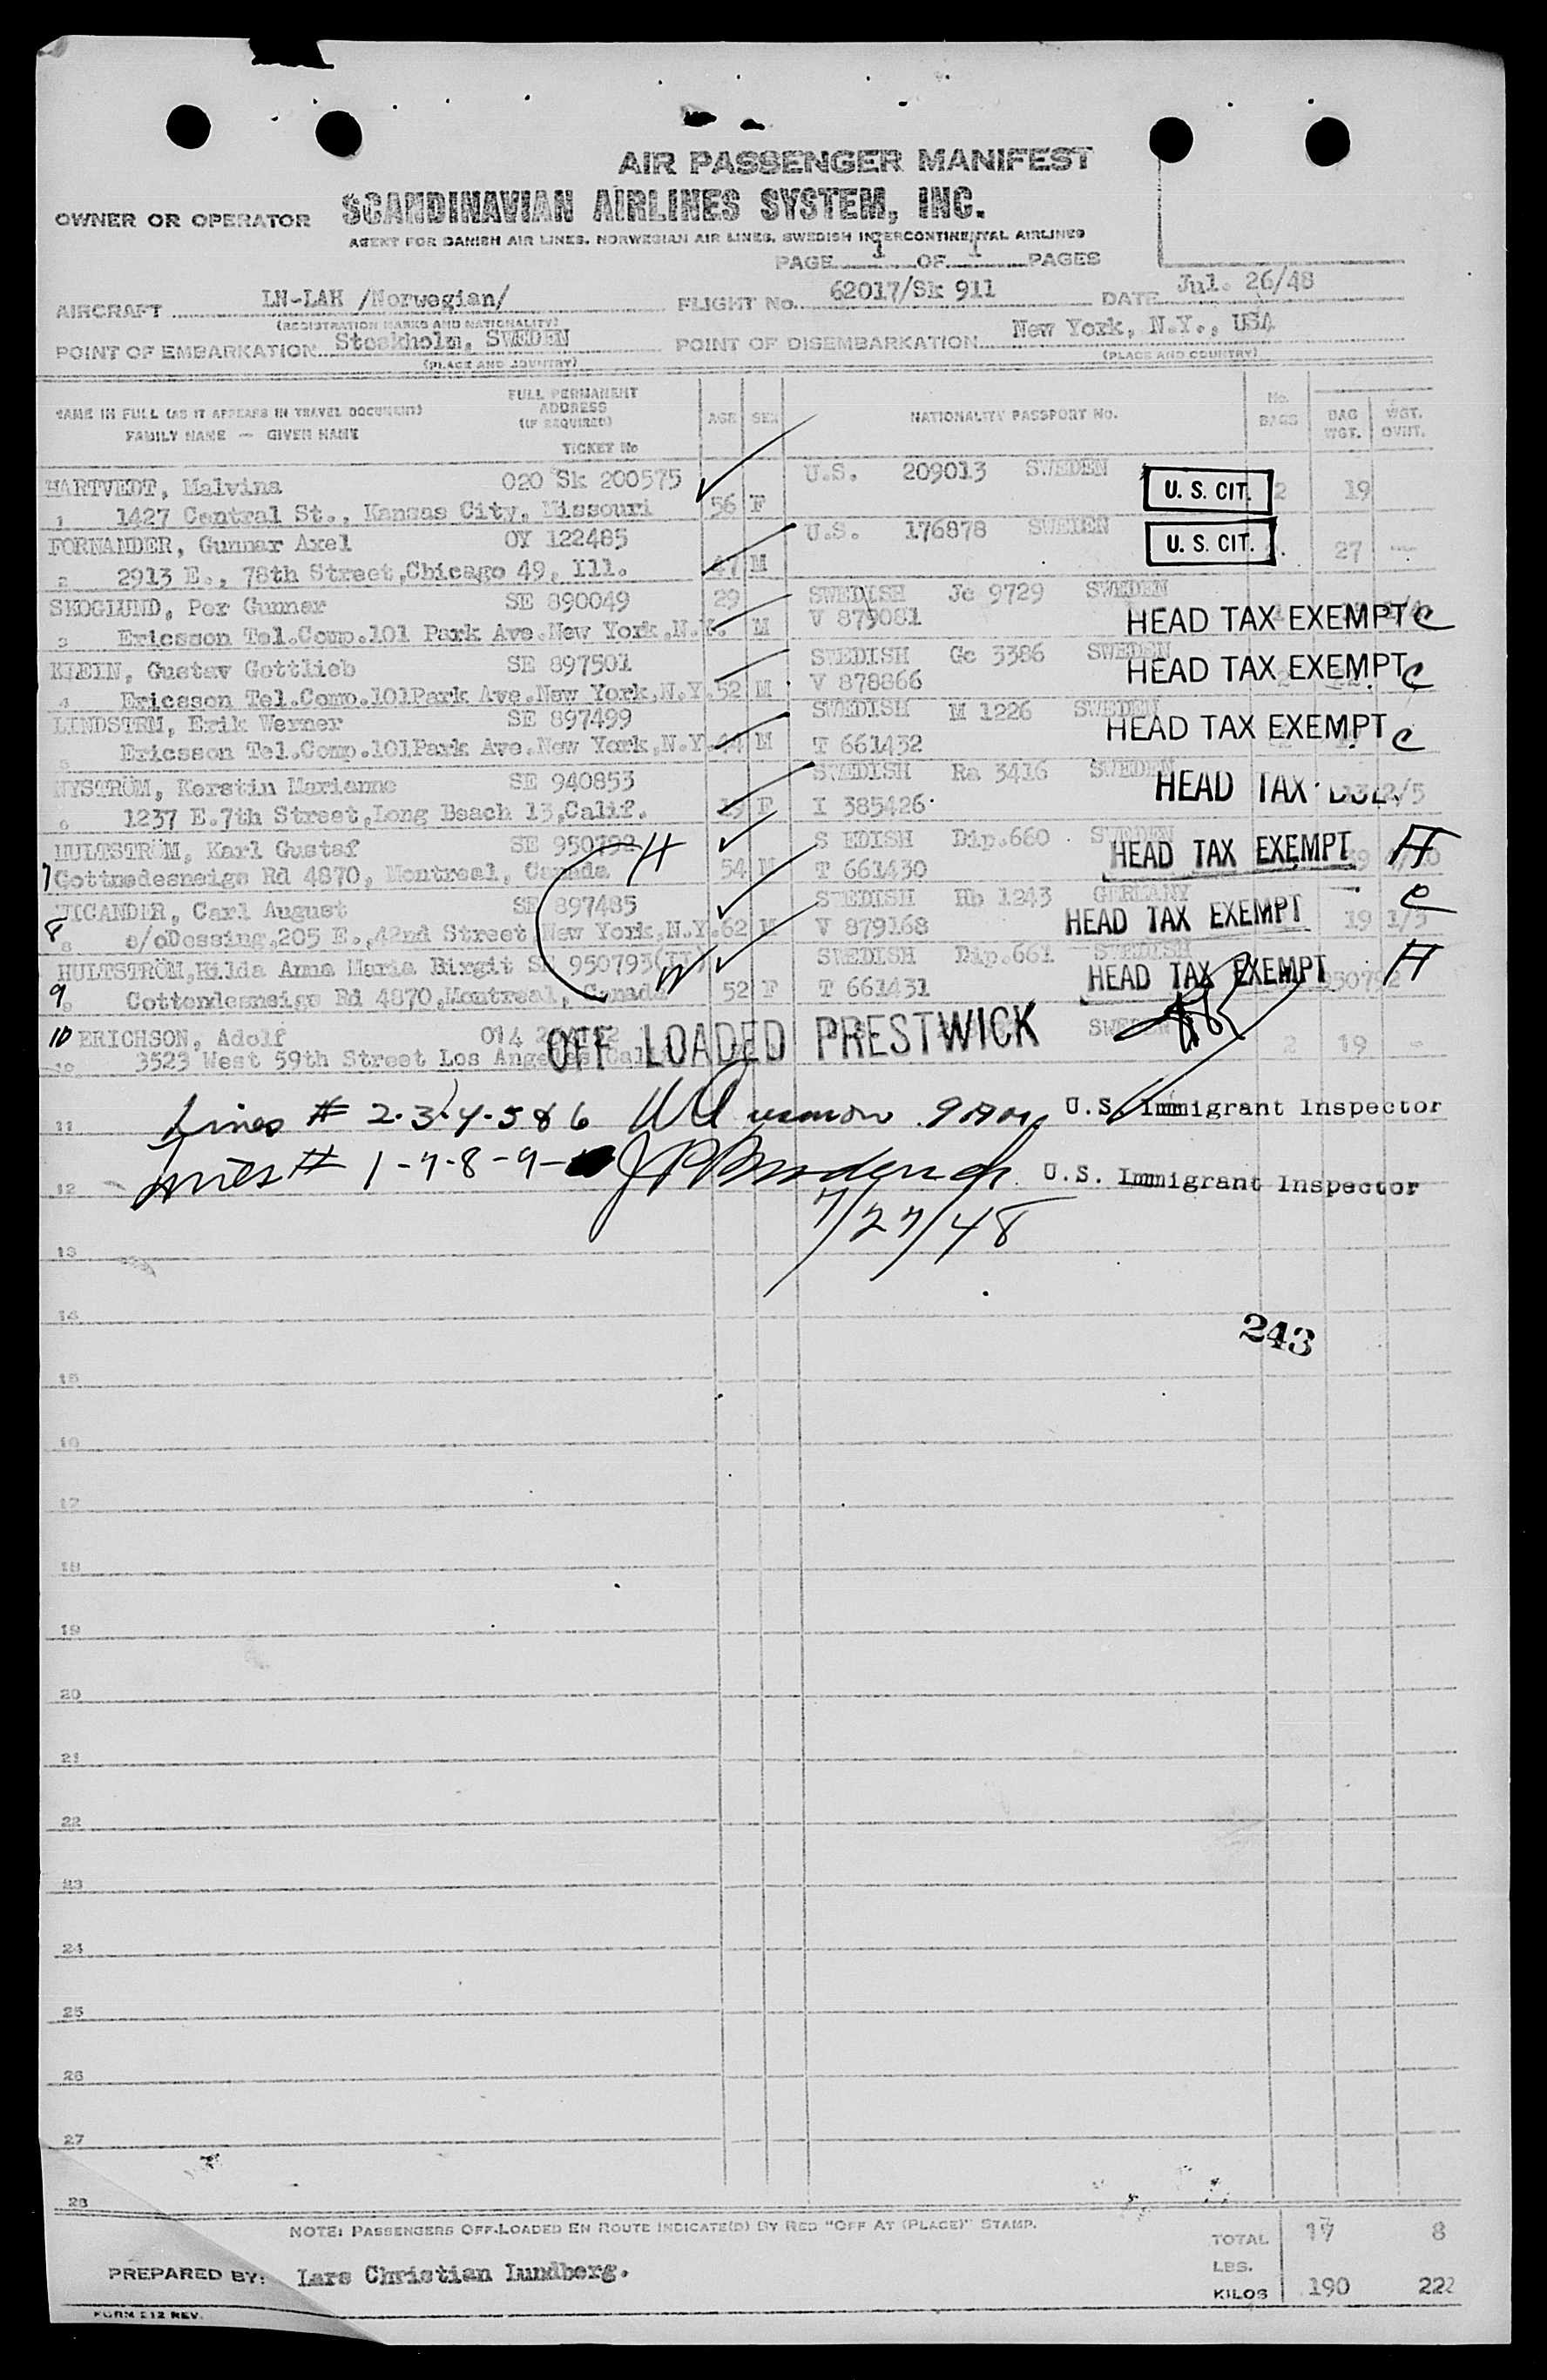 AIR PASSENGER MANIFEST
OWNER OR OPERATOR SCANDINAVIAN AIRLINES SYSTEM, INC.
AGENT FOR DANISH AIR LINES, NORWEGIAN AIR LINES, SWEDISH INTERCONTINENTAL AIRLINES
PAGE 1 OF 1 PAGES
AIRCRAFT LN-LAH /Norwegian/ FLIGHT No. 62017/Sk 911 DATE Jul. 26/48
(REGISTRATION MARKS AND NATIONALITY)
POINT OF EMBARKATION Stockholm, SWEDEN POINT OF DISEMBARKATION New York, N.Y., USA
(PLACE AND COUNTRY) (PLACE AND COUNTRY)
NAME IN FULL (AS IT APPEARS IN TRAVEL DOCUMENT) FULL PERMANENT ADDRESS (IF REQUIRED) AGE SEX NATIONALITY PASSPORT No. No. BAGS BAG WGT. WGT. OVWT.
FAMILY NAME — GIVEN NAME TICKET No
HARTVEDT, Malvina 020 Sk 200575 U.S. 209013 SWEDEN U. S. CIT. 2 19
1 1427 Central St., Kansas City, Missouri 56 F
FORNANDER, Gunnar Axel OY 122485 U.S. 176878 SWEDEN U. S. CIT. 27 —
2 2913 E., 78th Street,Chicago 49, Ill. 47 M
SKOGLUND, Per Gunnar SE 890049 29 SWEDISH Je 9729 SWEDEN
3 Ericsson Tel.Comp.101 Park Ave.New York,N.Y. M V 879081 HEAD TAX EXEMPT C
KLEIN, Gustav Gottlieb SE 897501 SWEDISH Gc 3386 SWEDEN
4 Ericsson Tel.Comp.101Park Ave.New York,N.Y. 52 M V 878866 HEAD TAX EXEMPT C
LINDSTRM, Erik Werner SE 897499 SWEDISH M 1226 SWEDEN
5 Ericsson Tel.Comp.101Park Ave.New York,N.Y. 44 M T 661432 HEAD TAX EXEMPT C
NYSTRÖM, Kerstin Marianne SE 940853 SWEDISH Ra 3416 SWEDEN
6 1237 E.7th Street,Long Beach 13,Calif. 19 F I 385426 HEAD TAX 2/5
HULTSTRÖM, Karl Gustaf SE 950792 H S EDISH Dip.660 SWEDEN
7 Cottnedesneige Rd 4870, Montreal, Canada 54 M T 661430 HEAD TAX EXEMPT H
WICANDER, Carl August SE 897485 SWEDISH Hb 1243 GERMANY C
8 c/oDessing,205 E.,42nd Street New York,N.Y. 62 M V 879168 HEAD TAX EXEMPT 19 1/3
HULTSTRÖM,Hilda Anna Maria Birgit SE 950793(II) SWEDISH Dip.661 SWEDISH
9 Cottendesneige Rd 4870,Montreal, Canada 52 F T 661431 HEAD TAX EXEMPT H
10 ERICHSON, Adolf 014 SWEDEN
10 3523 West 59th Street Los Angeles Cal OFF LOADED PRESTWICK 2 19 -
11 Lines # 2.3.4.5 & 6 U.S. Immigrant Inspector
12 Lines # 1-7-8-9- U.S. Immigrant Inspector
7/27/48
13
14
243
15
16
17
18
19
20
21
22
23
24
25
26
27
28
NOTE: PASSENGERS OFF-LOADED EN ROUTE INDICATE(D) BY RED "OFF AT (PLACE)" STAMP.
TOTAL 17 8
LBS.
PREPARED BY: Lars Christian Lundberg.
KILOS 190 222
FORM 212 REV.